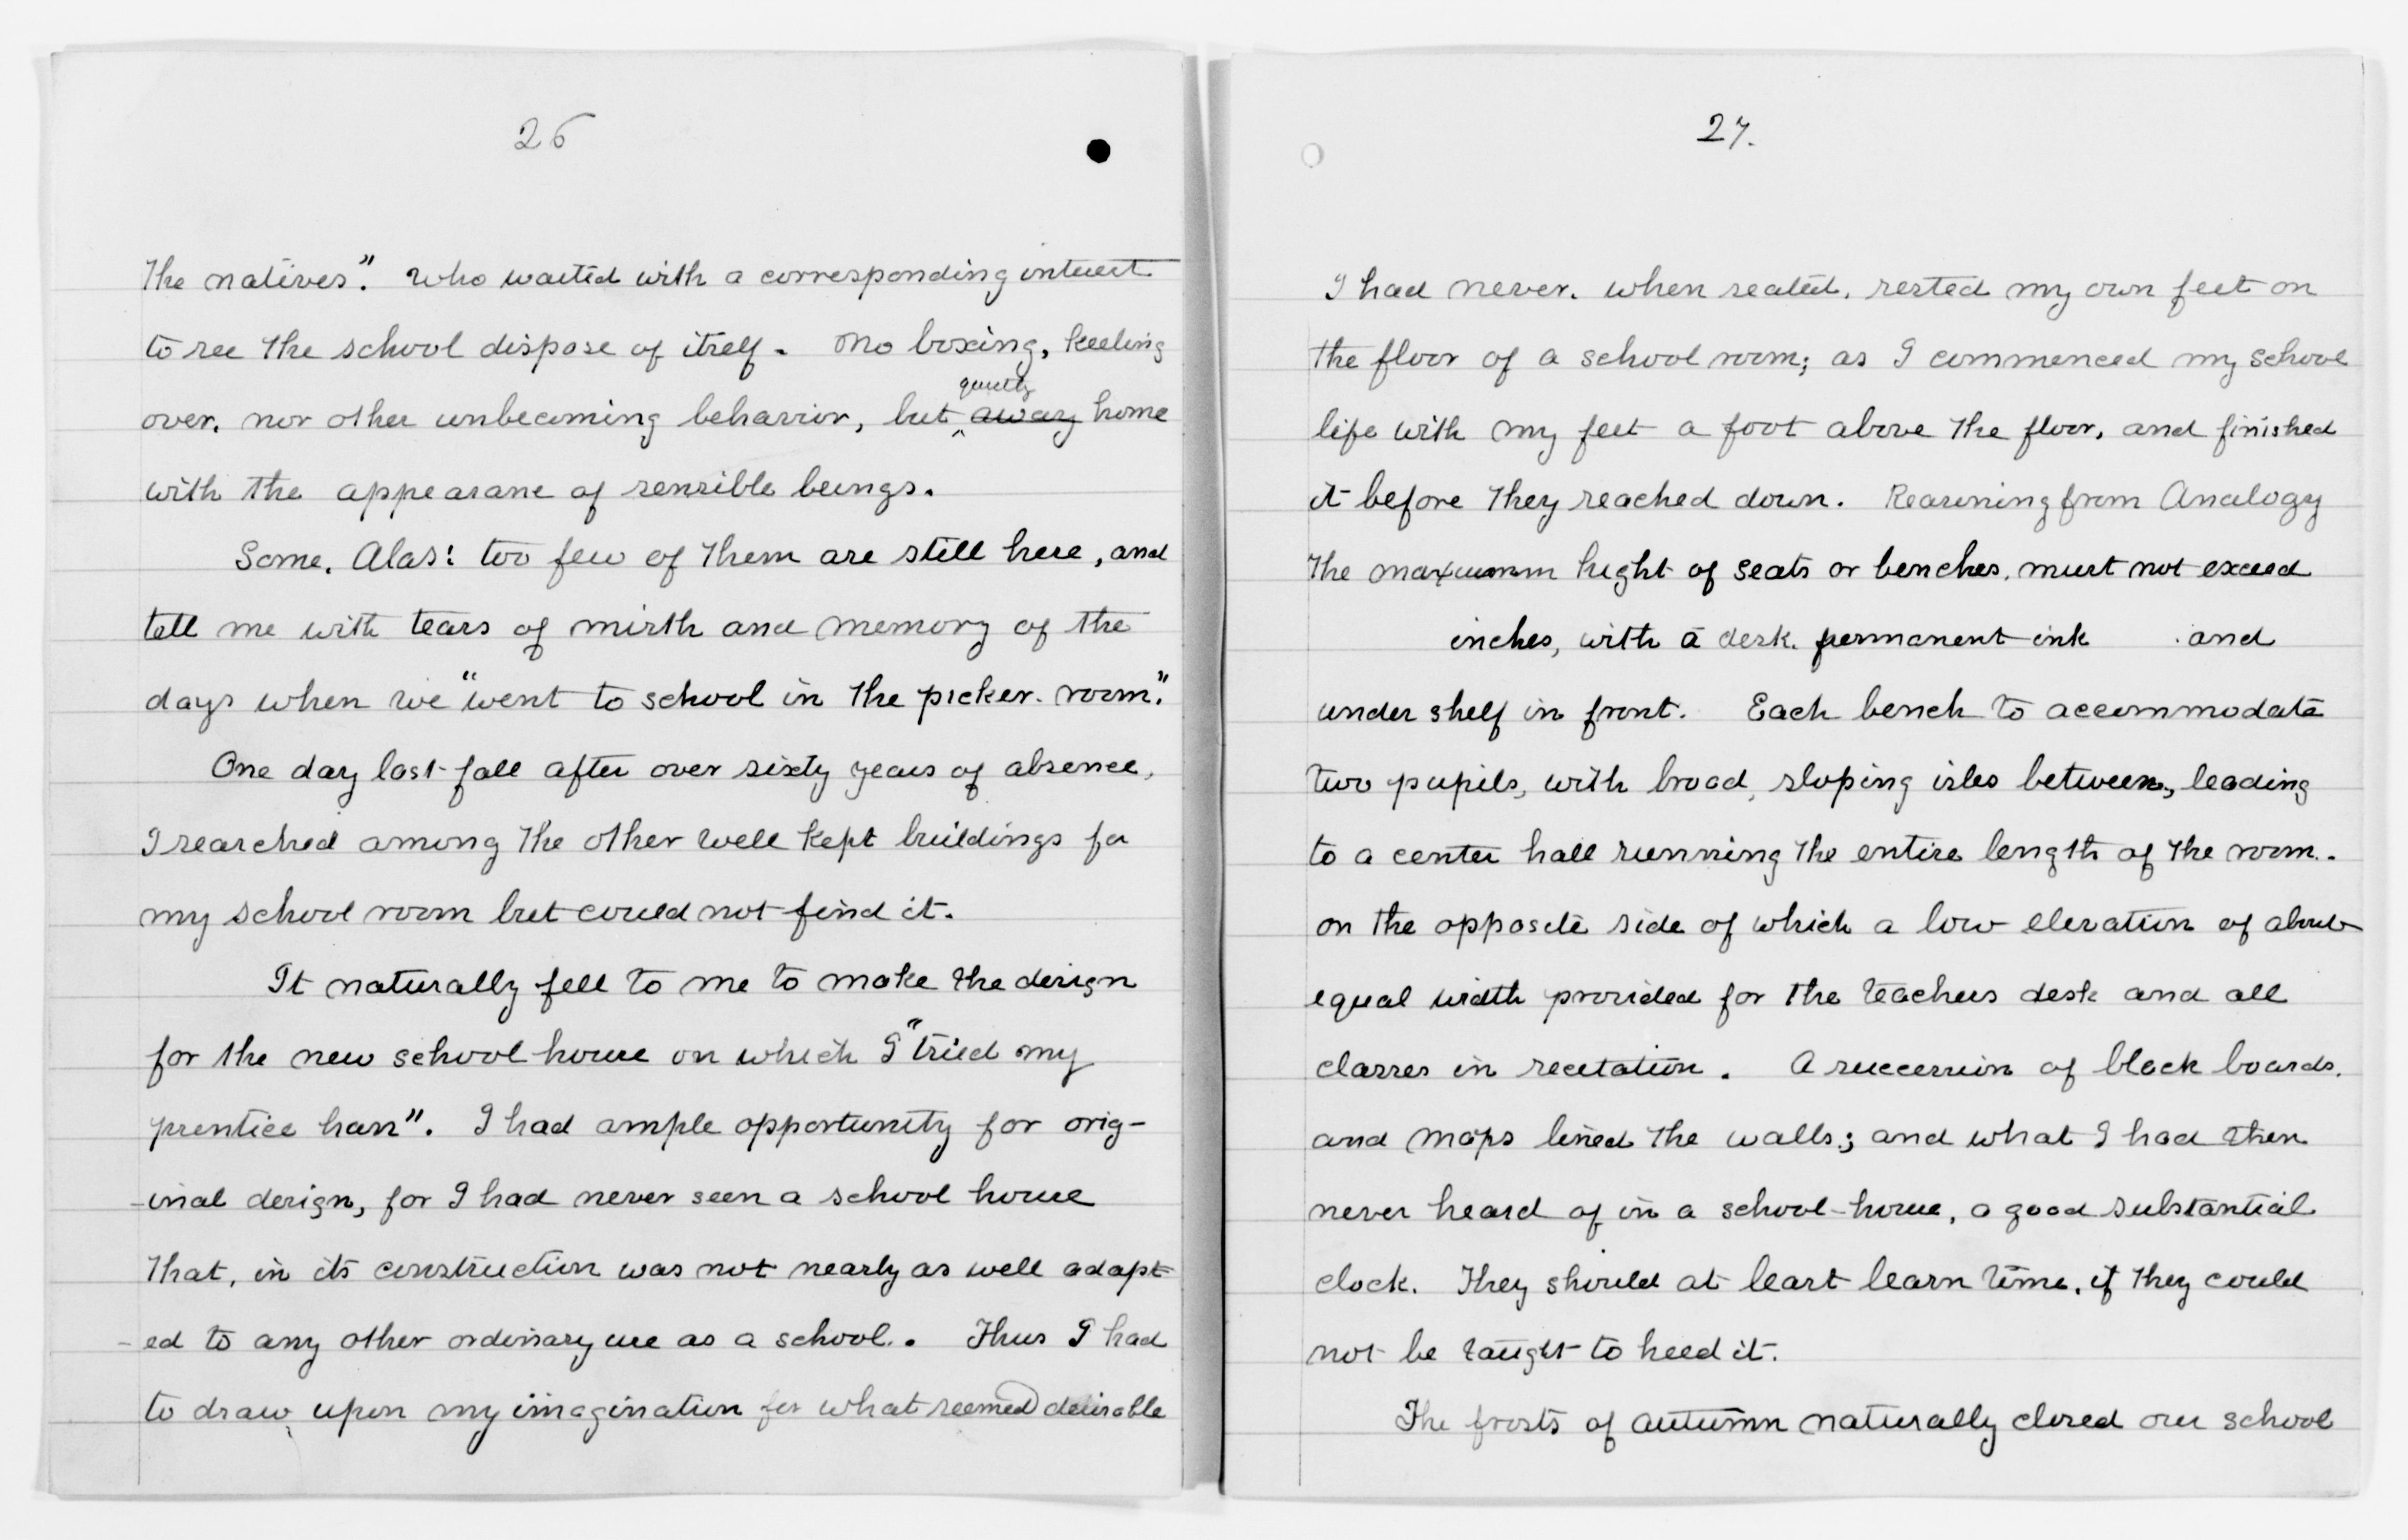 26
the natives". who waited with a corresponding interest
to see the school dispose of itself. No boxing, keeling
quietly
over, nor other unbecoming behavior, but away home
with the appearane of sensible beings.
Some. Alas! too few of them are still here, and
tell me with tears of mirth and memory of the
days when we "went to school in the picker-room."
One day last fall after over sixty years of absence,
I searched among the other well kept buildings for
my school room but could not find it.
It naturally fell to me to make the design
for the new school house on which I "tried my
prentice han". I had ample opportunity for orig-
-inal design, for I had never seen a school house
that, in its construction was not nearly as well adapt-
-ed to any other ordinary use as a school. Thus I had
to draw upon my imagination for what seemed desirable
27.
I had never, when seated, rested my own feet on
the floor of a school room; as I commenced my school
life with my feet a foot above the floor, and finished
it before they reached down. Reasoning from Analogy
the maxumum hight of seats or benches, must not exceed
inches, with a desk. permanent ink and
under shelf in front. Each bench to accommodate
two pupils, with broad, sloping isles between, leading
to a center hall running the entire length of the room.
on the opposite side of which a low elevation of about
equal width provided for the teachers desk and all
classes in recitation. A succession of black boards,
and maps lined the walls; and what I had then
never heard of in a school-house, a good substantial
clock. They should at least learn time, if they could
not be taught to heed it.
The frosts of autumn naturally closed our school